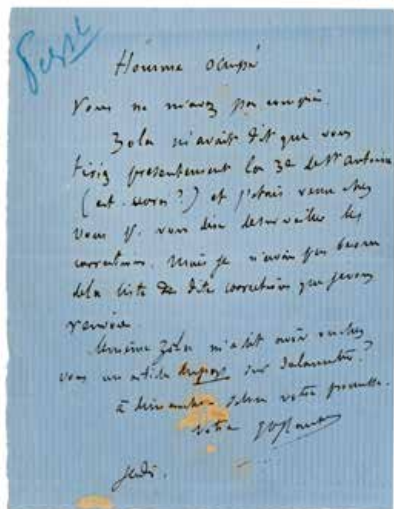 Homme occupé
Vous ne m'avez pas compris.
Zola m'avait dit que vous
tiriez présentement la 3e de St Antoine
(est-ce vrai ?) et j'étais venu chez
vous pr vous dire de surveiller les
corrections. Mais je n'avais pas besoin
de la liste des dites corrections que je vous
renvoie.
Le même Zola m'a dit avoir vu chez
vous un article sur Salammbô ?
à dimanche selon votre promesse.
votre GveFlaubert
Jeudi.